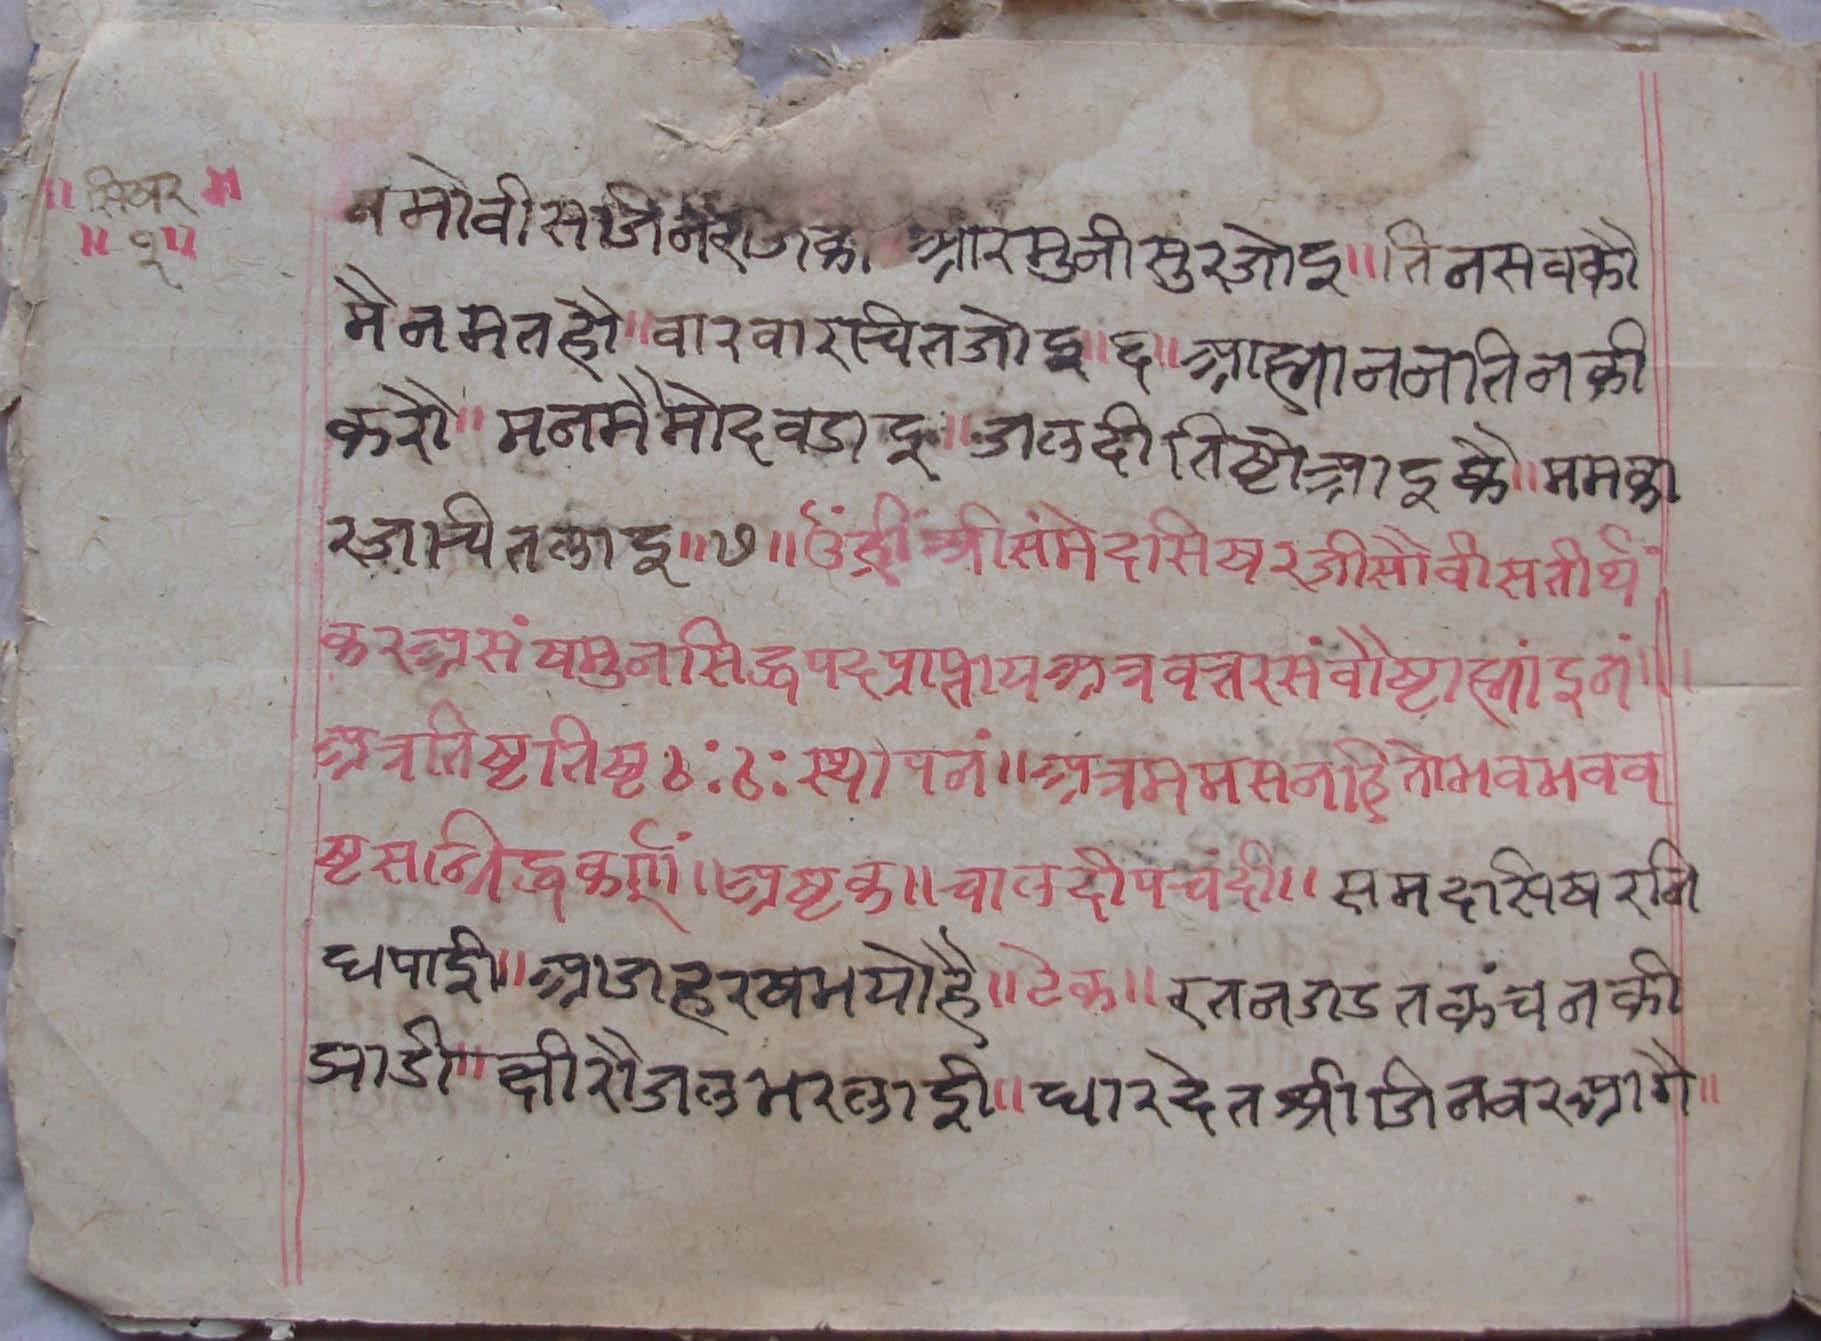 ॥ सिखर ॥
॥ १ ॥
नमो वीस जिनराज का और मुनीसुर जोइ ॥ तिन सव कौ
मै नमत हौ ॥ वार वार चित जोइ ॥ ६ ॥ आह्वानन तिन की
करौ ॥ मन मै मोद वडाइ ॥ जलदी तिष्टो आइ कै ॥ मम का
रज चित लाइ ॥ ७ ॥ उंह्रीं श्री संमेदसिषरजी सौ वीस तीर्थं
कर असंषमुन सिद्धपद प्राप्ताय अत्रवत्तरसंवौष्टाह्नांइनं ॥
अत्र तिष्ट तिष्ट ठः ठः स्थापनं ॥ अत्र मम सनहितो भव भव व
ष्ट सन्निद्ध कर्णं ॥ अष्टक ॥ चाल दीपचंदी ॥ समदासिषर नि
धपाई ॥ आज हरष भयो है ॥ टेक ॥ रतन जडत कंचन की
झाडी ॥ क्षीरौ जल भर लाई ॥ धार देत श्री जिनवर आगै ॥